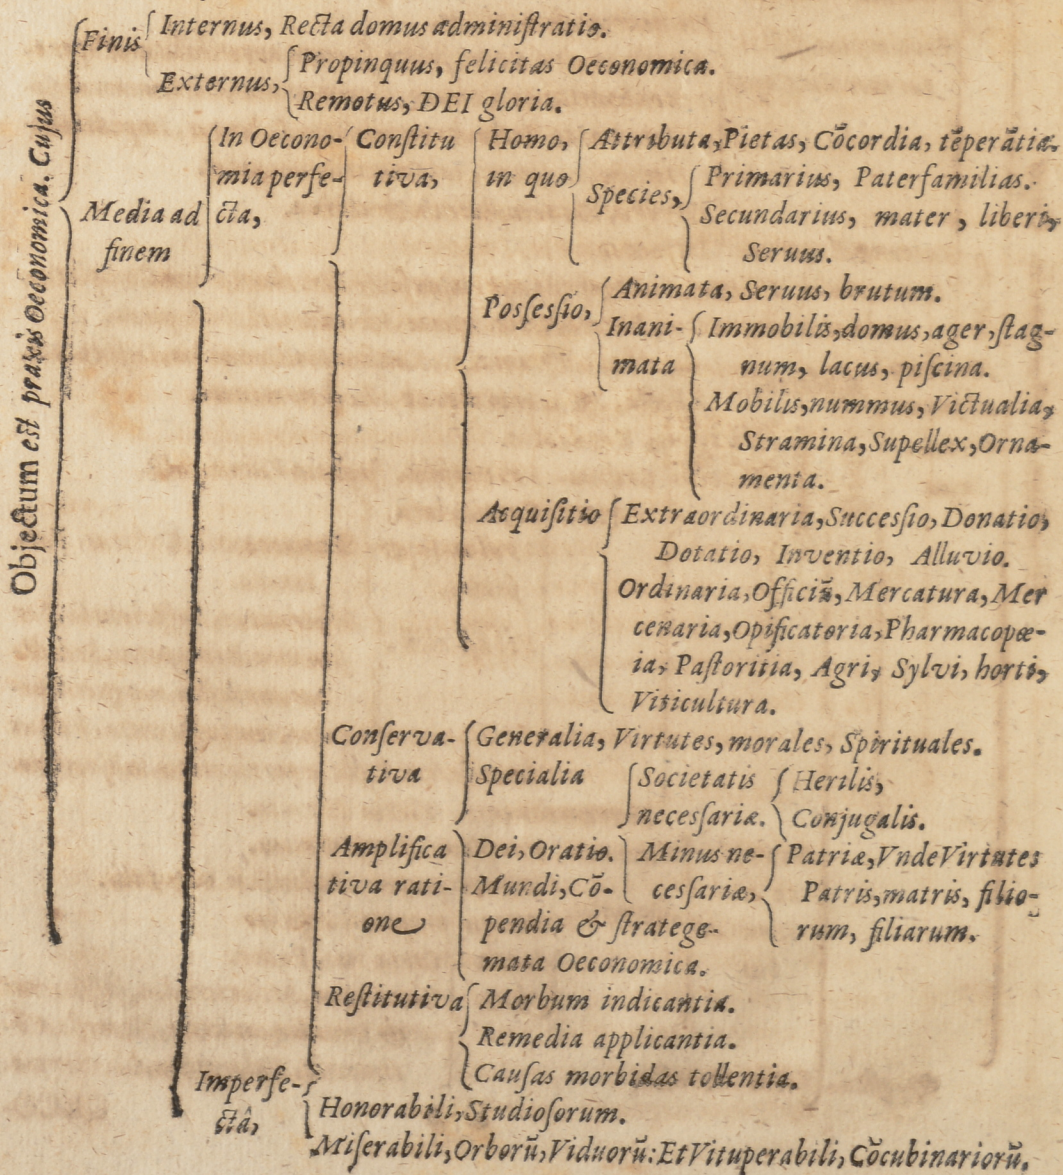 Objectum est praxis Oeconomica. Cujus
Finis
Internus, Recta domus administratio.
Externus,
Propinquus, felicitas Oeconomica.
Remotus, DEI gloria.
Media ad
finem
In Oecono-
mia perfe-
cta,
Constitu
tiva,
Homo,
in quo
Attributa, Pietas, Cõcordia, tẽperãtia.
Species,
Primarius, Paterfamilias.
Secundarius, mater, liberi,
Seruus.
Possessio,
Animata, Seruus, brutum.
Inani-
mata
Immobilis, domus, ager, stag-
num, lacus, piscina.
Mobilis, nummus, Victualia,
Stramina, Supellex, Orna-
menta.
Acquisitio
Extraordinaria, Successio, Donatio,
Dotatio, Inventio, Alluvio.
Ordinaria, Officiũ, Mercatura, Mer
cenaria, Opificatoria, Pharmacopœ-
ia, Pastoritia, Agri, Sylvi, horti,
Viticultura.
Conserva-
tiva
Generalia, Virtutes, morales, Spirituales.
Specialia
Societatis
necessariæ.
Herilis,
Conjugalis.
Minus ne-
cessariæ,
Patriæ, Vnde Virtutes
Patris, matris, filio-
rum, filiarum.
Amplifica
tiva rati-
one
Dei, Oratio.
Mundi, Cõ-
pendia & stratege-
mata Oeconomica.
Restitutiva
Morbum indicantia.
Remedia applicantia.
Causas morbidas tollentia.
Imperfe-
ctâ,
Honorabili, Studiosorum.
Miserabili, Orborũ, Viduorũ: Et Vituperabili, Cõcubinariorũ.